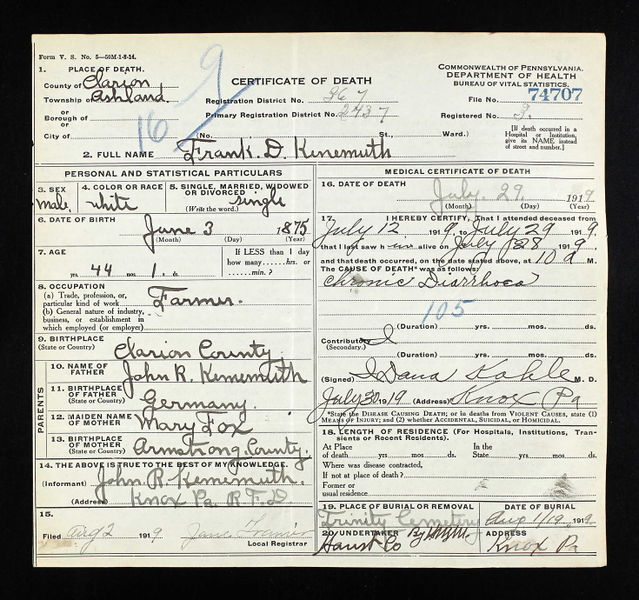 Form V. S. No. 5—50M-1-8-14.
COMMONWEALTH OF PENNSYLVANIA
DEPARTMENT OF HEALTH
BUREAU OF VITAL STATISTICS.
CERTIFICATE OF DEATH
1. PLACE OF DEATH.
County of Clarion
Township of Ashland
or
Borough of
or
City of
9
16
Registration District No. 967
Primary Registration District No. 2737
(No. St., Ward.)
File No. 74707
Registered No. 3.
[If death occurred in a Hospital or Institution, give its NAME instead of street and number.]
2. FULL NAME Frank. D. Kinemuth
PERSONAL AND STATISTICAL PARTICULARS
3. SEX male
4. COLOR OR RACE white
5. SINGLE, MARRIED, WIDOWED OR DIVORCED (Write the word.) single
6. DATE OF BIRTH June 3 1875
(Month) (Day) (Year)
7. AGE
44 yrs. 1 mos. ds.
If LESS than 1 day how many hrs. or min.?
8. OCCUPATION
(a) Trade, profession, or particular kind of work
(b) General nature of industry, business, or establishment in which employed (or employer)
Farmer.
9. BIRTHPLACE
(State or Country) Clarion County.
PARENTS
10. NAME OF FATHER John R. Kemmuth
11. BIRTHPLACE OF FATHER (State or Country) Germany.
12. MAIDEN NAME OF MOTHER Mary Fox
13. BIRTHPLACE OF MOTHER (State or Country) Armstrong County.
14. THE ABOVE IS TRUE TO THE BEST OF MY KNOWLEDGE.
(Informant) John. R. Kemmuth.
(Address) Knox Pa. R.F.D
15.
Filed Aug 2 1919
Local Registrar
MEDICAL CERTIFICATE OF DEATH
16. DATE OF DEATH July. 29, 1919
(Month) (Day) (Year)
17. I HEREBY CERTIFY, That I attended deceased from
July 12 1919, to July 29 1919
that I last saw him alive on July 28 1919
and that death occurred, on the date stated above, at 10 a M.
The CAUSE OF DEATH was as follows:
Chronic Diarrhoea
105
(Duration) yrs. mos. ds.
Contributory
(Secondary.)
(Duration) yrs. mos. ds.
(Signed) I Dana Kahle M. D.
July 30 1919 (Address) Knox Pa
*State the DISEASE CAUSING DEATH; or in deaths from VIOLENT CAUSES, state (1) MEANS OF INJURY; and (2) whether ACCIDENTAL, SUICIDAL, or HOMICIDAL.
18. LENGTH OF RESIDENCE (For Hospitals, Institutions, Transients or Recent Residents).
At place of death yrs. mos. ds. In the State yrs. mos. ds.
Where was disease contracted,
If not at place of death?
Former or usual residence
19. PLACE OF BURIAL OR REMOVAL
Trinity Cemetery
DATE OF BURIAL
Aug 1/19 1919
20 UNDERTAKER
Haust Co
ADDRESS
Knox Pa